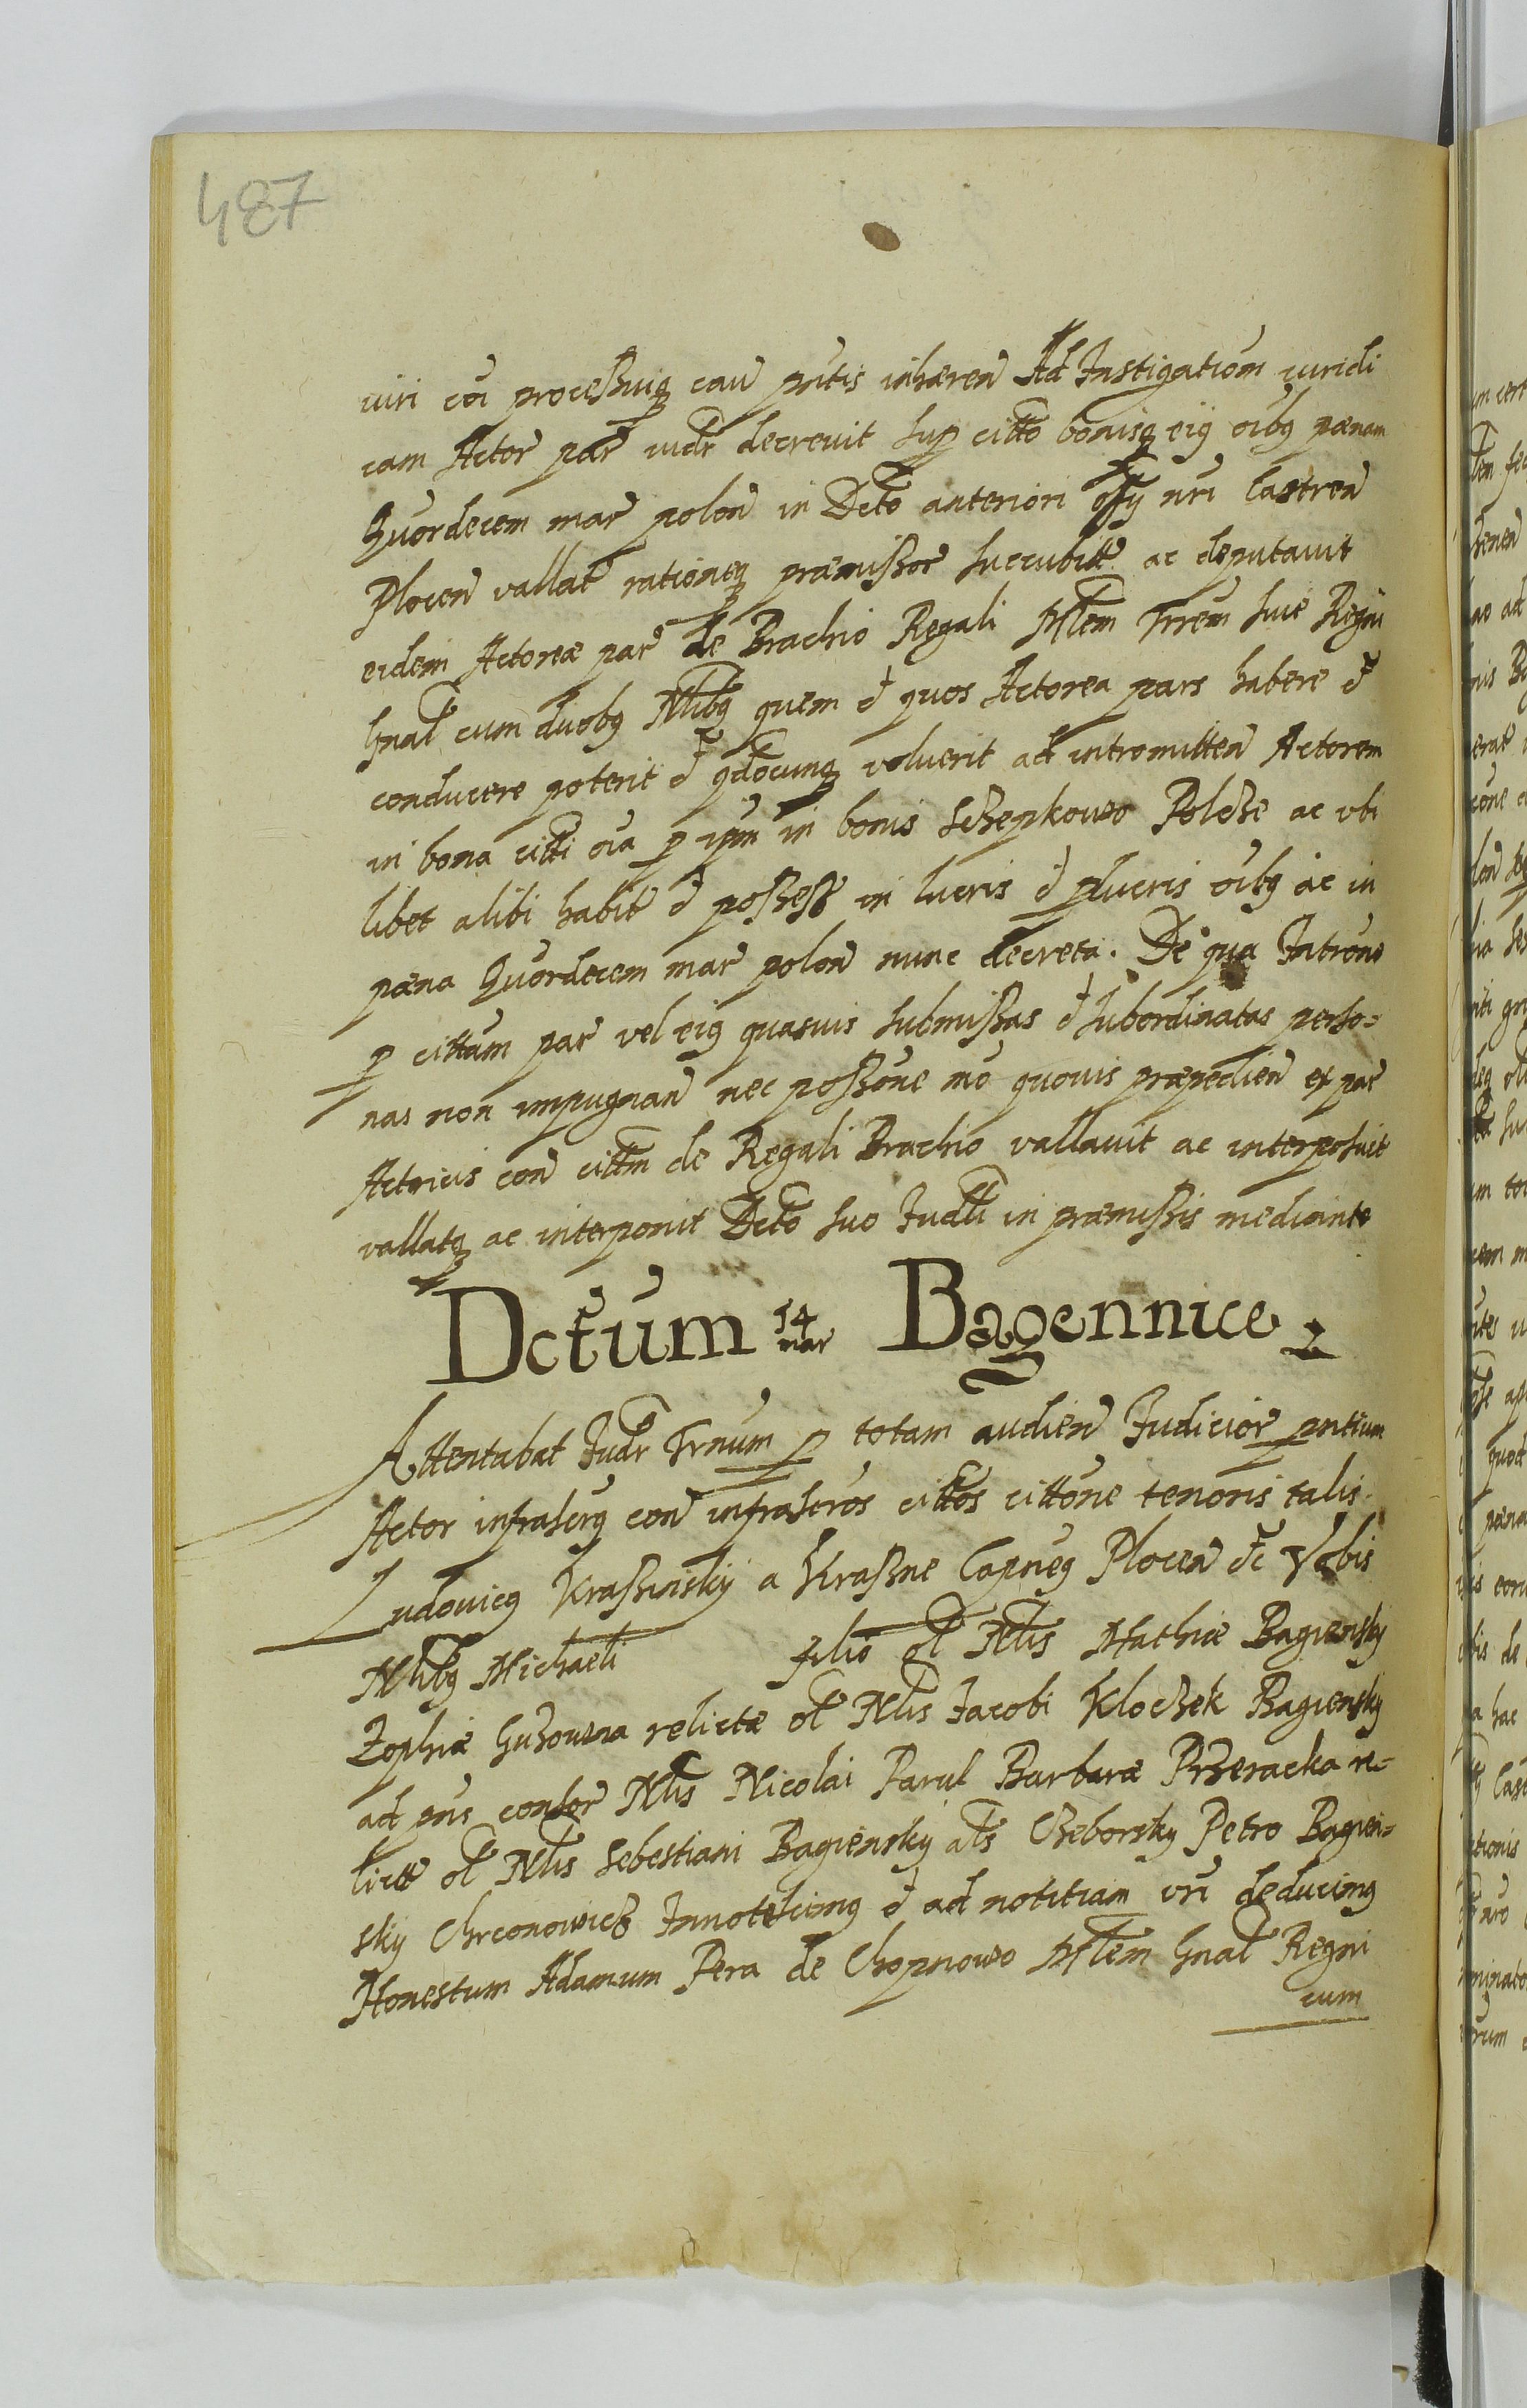 487
iuri coi processuiq cau pntis inhæren Ad Instigationm iuridi
cam Actor par iudr decrevit sup citto bonisq eiq oibq pænam
Quordecem mar polon in Dcto anteriori offy nri Castren
Plocen vallat rationeq præmissor succubitt ac deputavit
eidem Actoreæ par de Brachio Regali Mlem Trrem sive Regni
Gnal cum duobq Nlibq quem et quos Actorea pars habere et
conducere poterit et qdocunq voluerit ad intromitten Actorem
in bona citti oia p ipm in bonis Sczepkowo Polcze ac vbi
libet alibi habit et possess in lucris et plucris oibq ac in
pæna Quordecem mar polon nunc decreta. De qua Introne
p cittum par vel eiq quasuis submissas et subordinatas perso=
nas non impugnan nec possone mo quouis præpedien ex par
Actricis con cittm de Regali Brachio vallauit ac interposuit
vallatq ac interponit Dcto suo Judli in præmissis mediante
Dctum 14 mar Bagennice
Attentabat Judr Trnum p totam audien Judicior pntium
Actor infrascrq con infrascros cittos cittone tenoris talis.
Ludovicq Krassinsky a Krassne Capneq Plocen etc Vobis
Nlibq Michaeli filio ol Nlis Mathiæ Bagiensky
Zophiæ Guzowna relictæ ol Nlis Jacobi Kloczek Bagiensky
ad pns consor Nlis Nicolai Parul Barbaræ Przeracka re=
lictt ol Nlis Sebestiani Bagiensky als Czeborsky Petro Bagien=
sky Chrconowicz Innotescimq et ad notitiam vri deducimq
Honestum Adamum Pera de Chopnowo Mlem Gnal Regni
cum